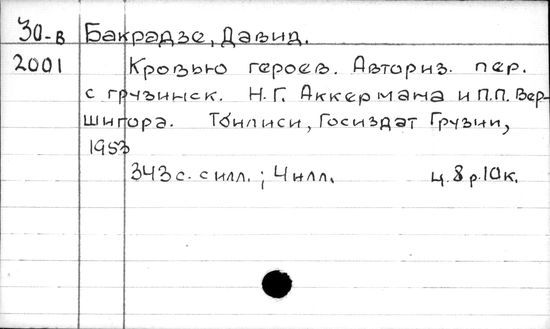 30-в Бакрадзе, Давид.
2001 Кровью героев. Авториз. пер.
с грузинск. Н.Г. Аккермана и П.П. Вер-
шигора. Тбилиси, Госиздат Грузии,
1953
343 с. с илл.; 4 илл. ц. 8 р. 10 к.